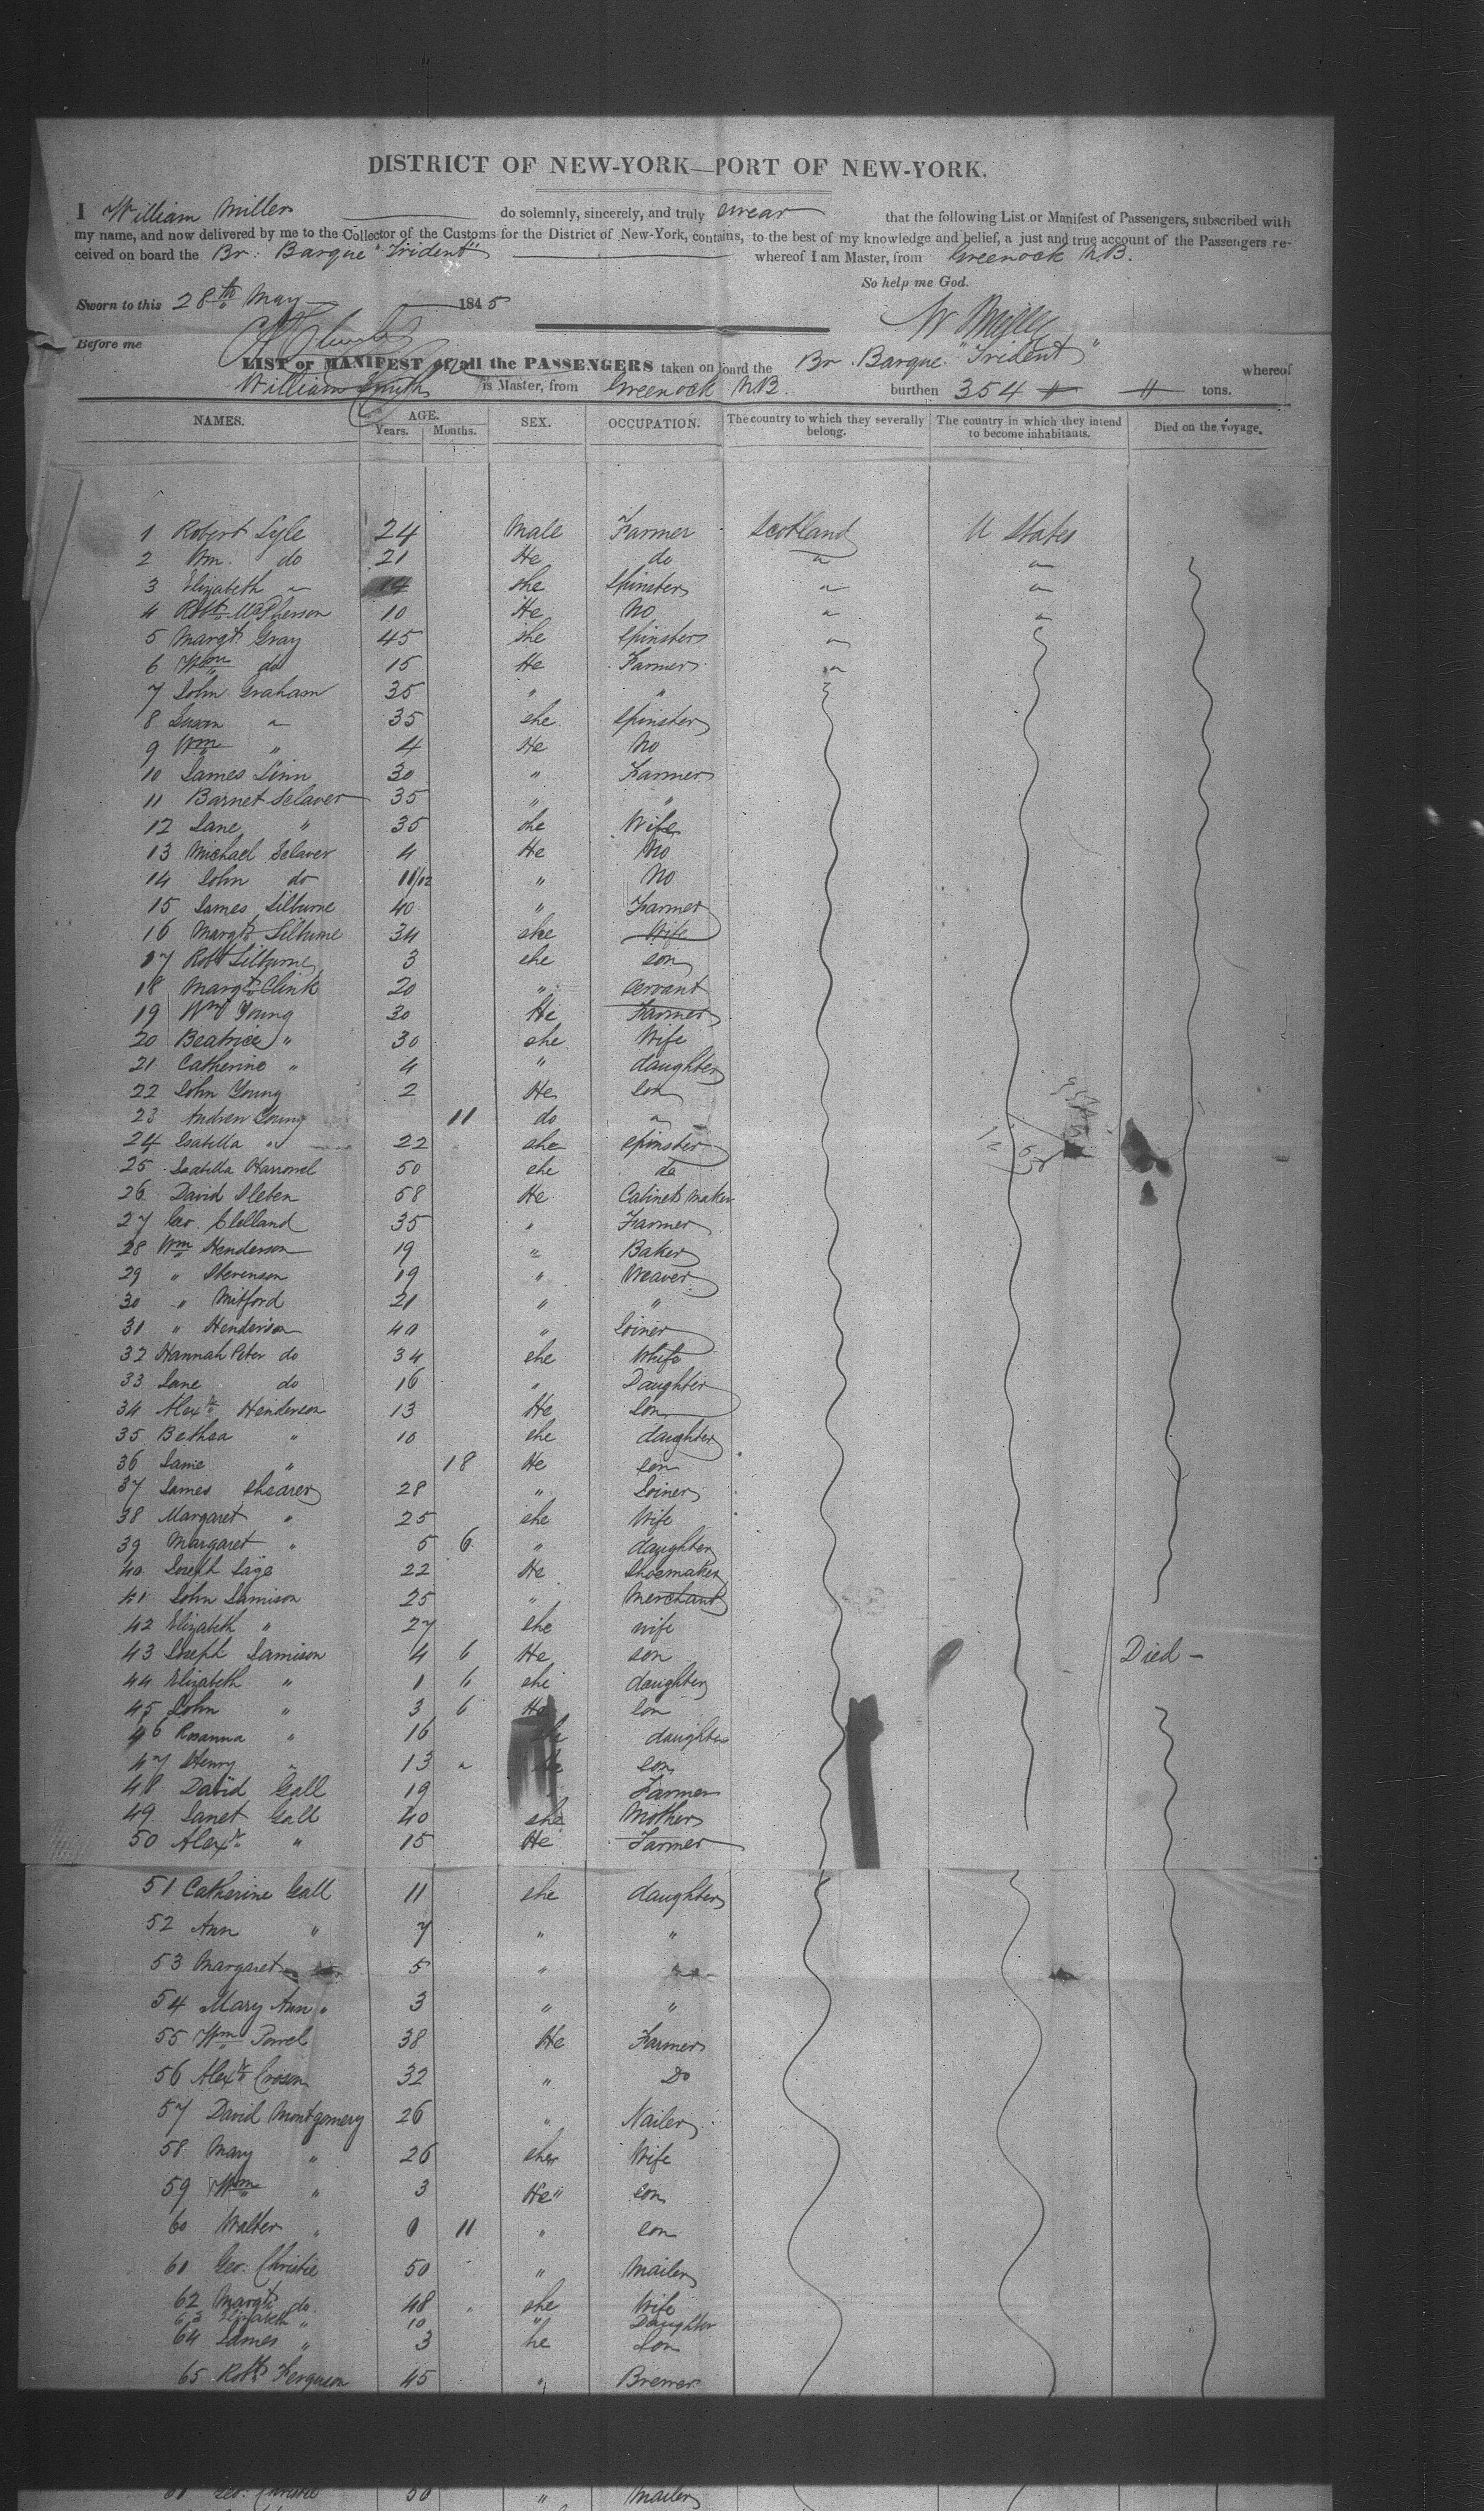 DISTRICT OF NEW-YORK—PORT OF NEW-YORK.
I William Miller do solemnly, sincerely, and truly swear that the following List or Manifest of Passengers, subscribed with
my name, and now delivered by me to the Collector of the Customs for the District of New-York, contains, to the best of my knowledge and belief, a just and true account of the Passengers re-
ceived on board the Br. Barque "Trident" whereof I am Master, from Greenock N.B.
So help me God.
Sworn to this 28th May 1845
W Miller
Before me
LIST or MANIFEST of all the PASSENGERS taken on board the Br. Barque "Trident" whereof
William Smith is Master, from Greenock N.B. burthen 354 tons.
NAMES. AGE. Years. Months. SEX. OCCUPATION. The country to which they severally belong. The country in which they intend to become inhabitants. Died on the voyage.
1 Robert Lyle 24 Male Farmer Scotland U States
2 Wm. do 21 He do " "
3 Elizabeth " 14 she Spinster " "
4 Robt. McPherson 10 He No " "
5 Margt. Gray 45 she Spinster "
6 Wm do 15 He Farmer "
7 John Graham 35 " "
8 Susan " 35 she Spinster
9 Wm " 4 He No
10 James Linn 30 " Farmer
11 Barnet Selaver 35 " "
12 Jane " 35 she Wife
13 Michael Selaver 4 He No
14 John do 11/12 " No
15 James Lilburne 40 " Farmer
16 Margt. Lilburne 34 she Wife
17 Robt Lilburne 3 she son
18 Margt. Clink 20 " Servant
19 Wm Young 30 He Farmer
20 Beatrice " 30 she Wife
21 Catherine " 4 " daughter
22 John Young 2 He Son
23 Andrew Young 11 do "
24 Isabella " 22 she Spinster
25 Isabella 50 she do
26 David 58 He Cabinet Maker
27 Geo. Clelland 35 " Farmer
28 Wm Henderson 19 " Baker
29 " Stevenson 19 " Weaver
30 " Mitford 21 " "
31 " Henderson 40 " Joiner
32 Hannah Peter do 34 she Wife
33 Jane do 16 " Daughter
34 Alexr. Henderson 13 He Son
35 Bethea " 10 she daughter
36 Jamie " 18 He son
37 James Shearer 28 " Joiner
38 Margaret " 25 she Wife
39 Margaret " 5 6 " daughter
40 Joseph 22 He Shoemaker
41 John Jamison 25 " Merchant
42 Elizabeth " 27 she wife
43 Joseph Jamison 4 6 He son Died -
44 Elizabeth " 1 6 she daughter
45 John " 3 6 He son
46 Rosanna " 16 she daughter
47 Henry " 13 " He son
48 David Gall 19 Farmer
49 Janet Gall 40 she Mother
50 Alexr. " 15 He Farmer
51 Catherine Gall 11 she daughter
52 Ann " 7 " "
53 Margaret 5 "
54 Mary Ann " 3 " "
55 Wm Powel 38 He Farmer
56 Alexr. 32 " Do
57 David Montgomery 26 " Nailer
58 Mary " 26 she Wife
59 Wm " 3 He" son
60 Walter " 0 11 " son
61 Geo. Christie 50 " Nailer
62 Margt. do. 48 she Wife
63 Elizabeth " 10 " Daughter
64 James " 3 he Son
65 Robt. Ferguson 45 " Brewer
61 Geo. Christie 50 " Nailer